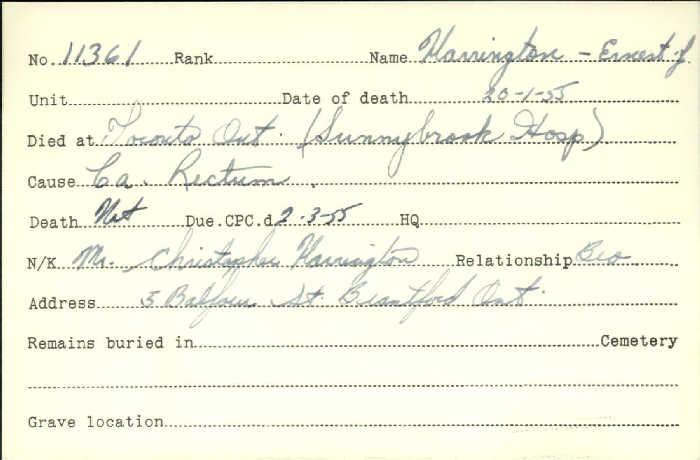 No. 11361 Rank Name Harrington - Ernest J.
Unit Date of death 20-1-55
Died at Toronto Ont. (Sunnybrook Hosp)
Cause Ca. Rectum.
Death Not Due.CPC.d 2-3-55 HQ
N/K Mr. Christopher Harrington Relationship Bro.
Address 5 Balfour St. Brantford Ont.
Remains buried in Cemetery
Grave location